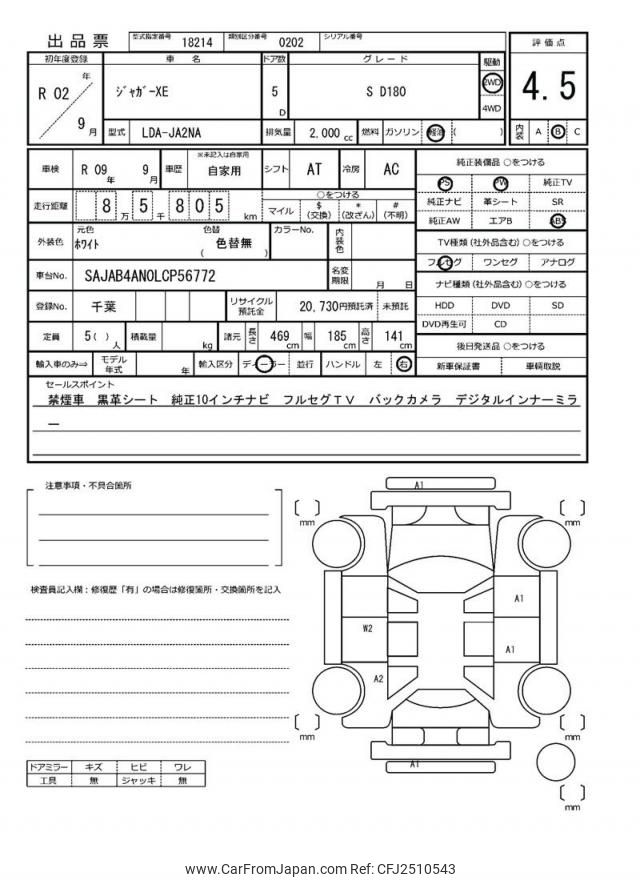 出品票 型式指定番号 18214 類別区分番号 0202 シリアル番号
初年度登録 車名 ドア数 グレード 駆動 評価点
R 02 年 9 月 ジャガーXE 5 D S D180 2WD 4WD 4.5
型式 LDA-JA2NA 排気量 2,000 cc 燃料 ガソリン 軽油 ( ) 内装 A B C
車検 R 09 年 9 月 車歴 ※未記入は自家用 自家用 シフト AT 冷房 AC 純正装備品 ○をつける
PS PW 純正TV
走行距離 8 5 万 千 8 0 5 km ○をつける
マイル $ (交換) * (改ざん) # (不明)
純正ナビ 革シート SR
純正AW エアB ABS
外装色 元色 ホワイト 色替 ( 色替無 ) カラーNo. 内装色
TV種類 (社外品含む) ○をつける
フルセグ ワンセグ アナログ
車台No. SAJAB4AN0LCP56772 名変期限 月 日
ナビ種類 (社外品含む) ○をつける
登録No. 千葉 リサイクル預託金 20,730円預託済 未預託
HDD DVD SD
DVD再生可 CD
定員 5 ( ) 人 積載量 kg 諸元 長さ 469 cm 幅 185 cm 高さ 141 cm
後日発送品 ○をつける
輸入車のみ⇒ モデル年式 年 輸入区分 ディーラー 並行 ハンドル 左 右
新車保証書 車輌取説
セールスポイント
禁煙車 黒革シート 純正10インチナビ フルセグTV バックカメラ デジタルインナーミラ
ー
注意事項・不具合箇所
検査員記入欄：修復歴「有」の場合は修復箇所・交換箇所を記入
A1
mm
mm
A1
W2
A1
A2
mm
mm
A1
mm
ドアミラー キズ ヒビ ワレ
工具 無 ジャッキ 無
www.CarFromJapan.com Ref: CFJ2510543